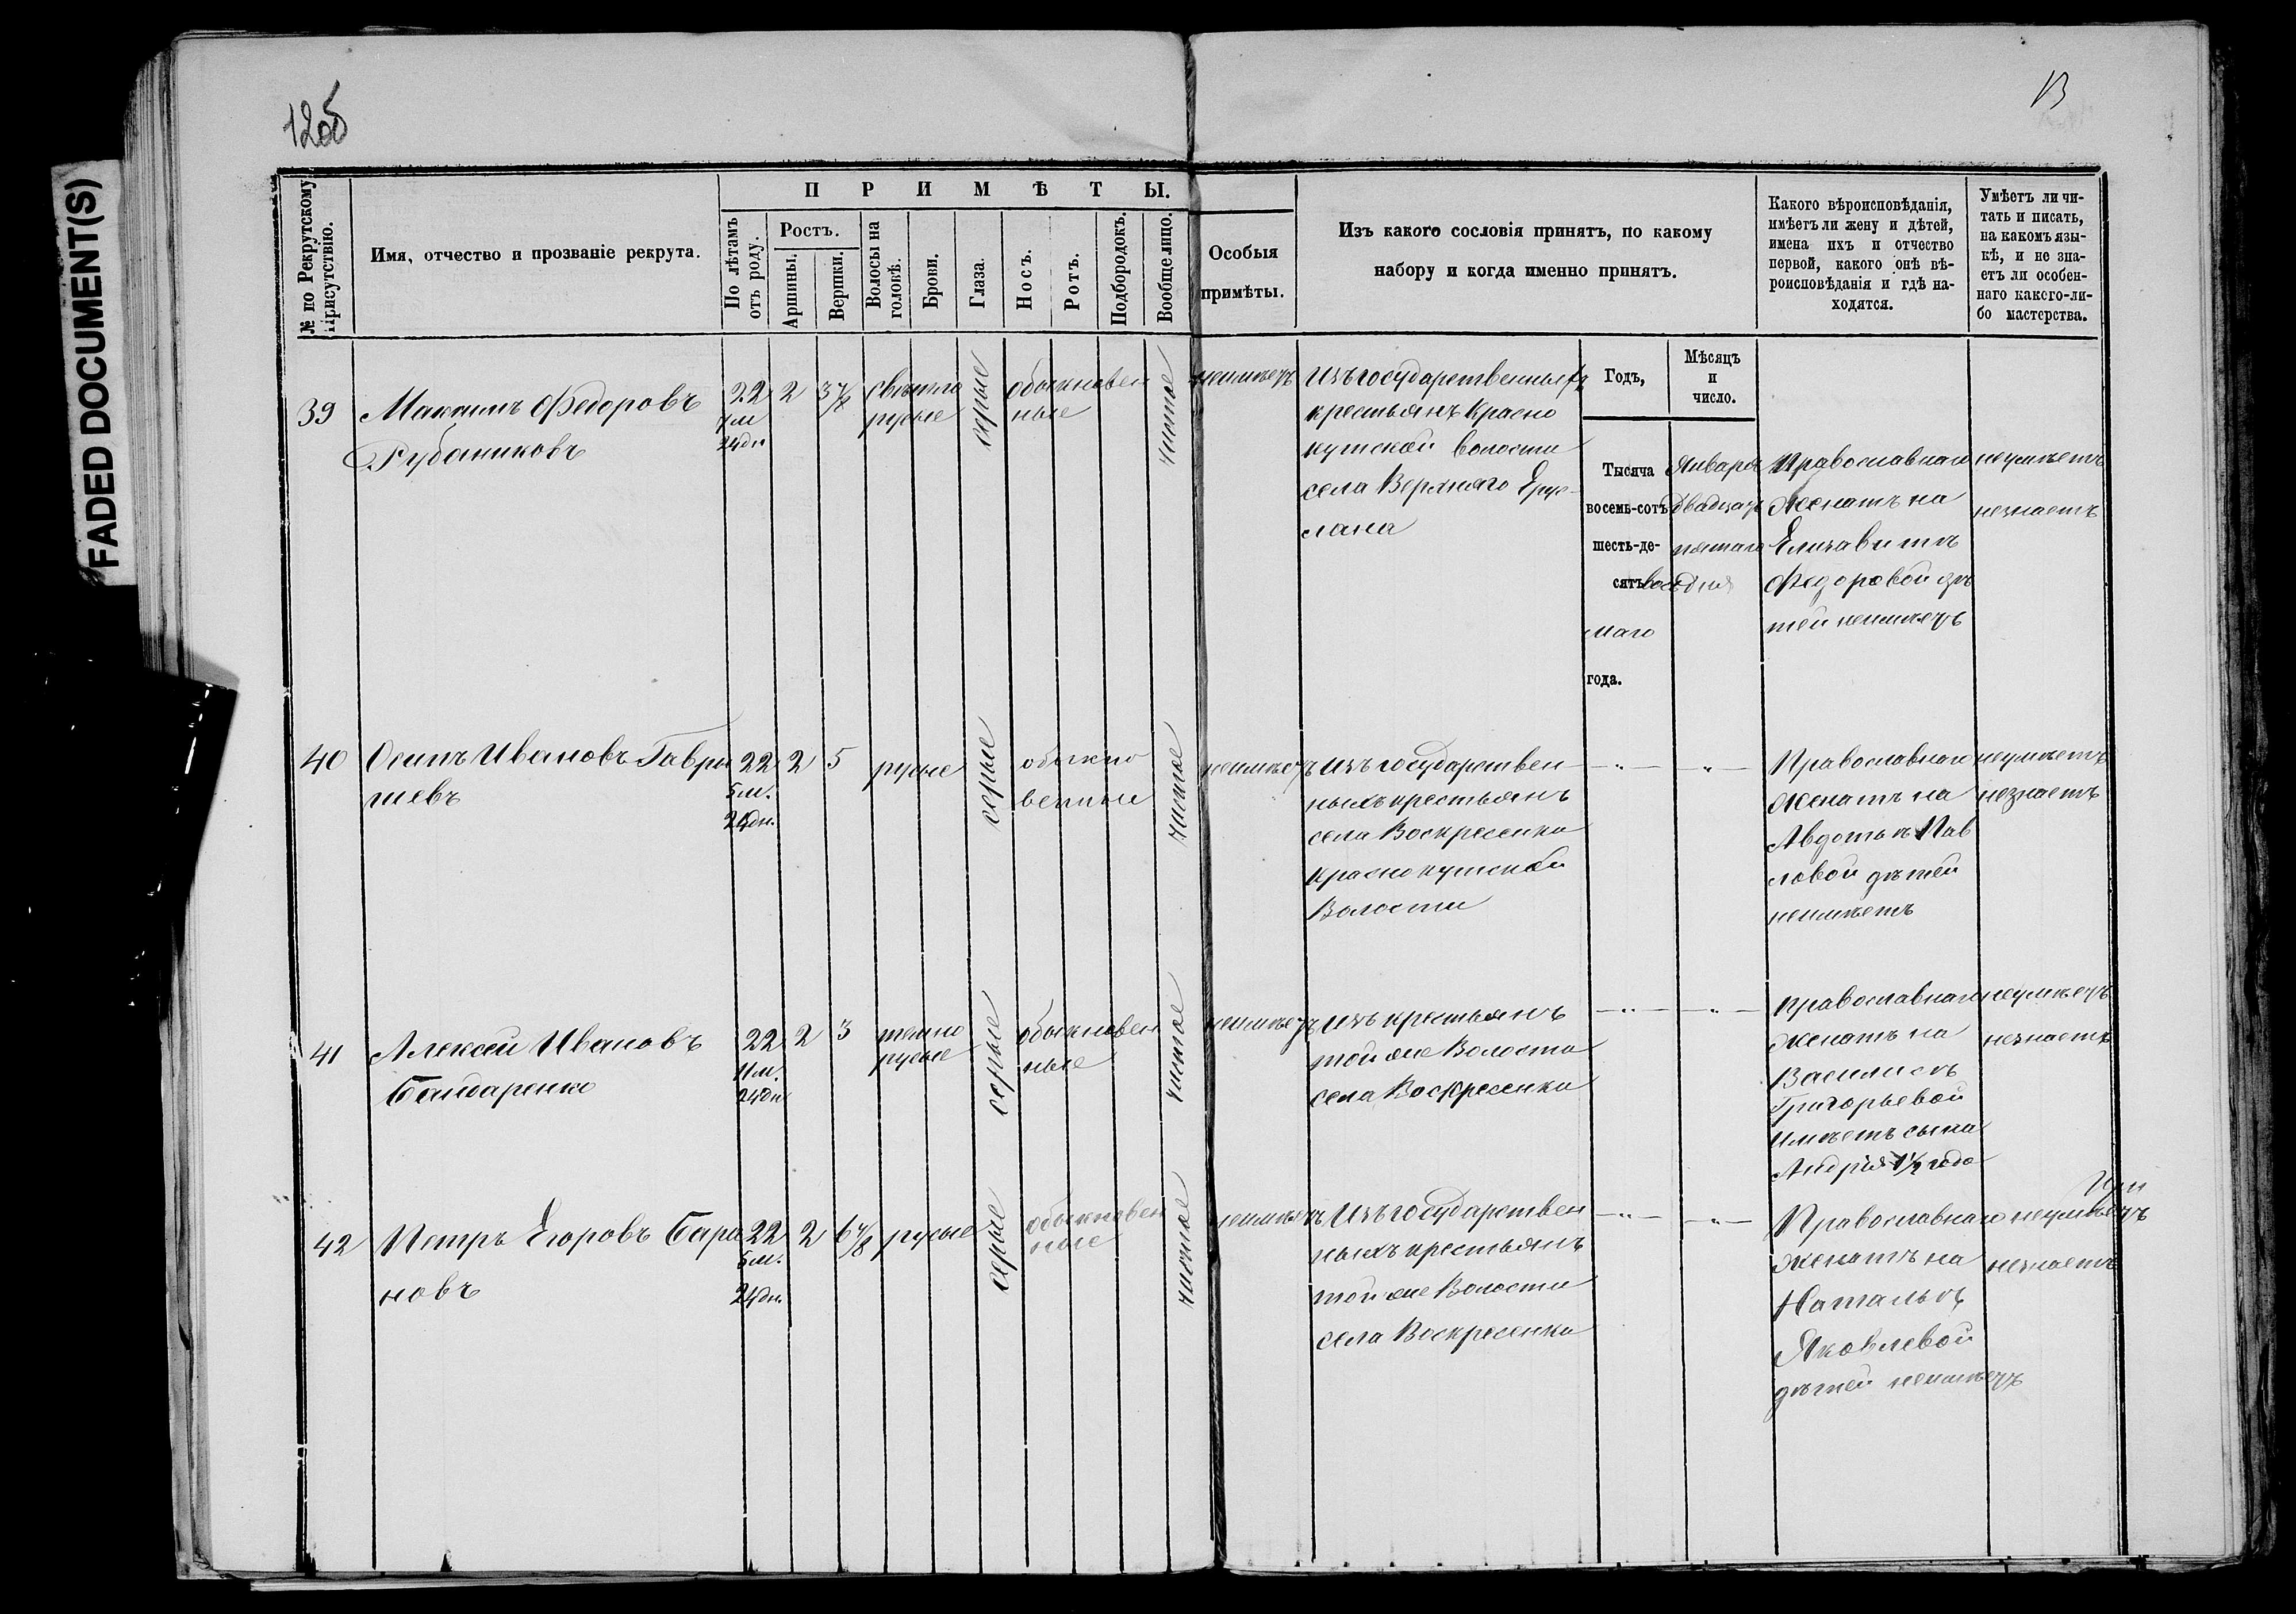 12об
13
FADED DOCUMENT(S)
№ по Рекрутскому Присутствію.
Имя, отчество и прозваніе рекрута.
ПРИМѢТЫ.
По лѣтамъ отъ роду.
Ростъ.
Аршины.
Вершки.
Волосы на головѣ.
Брови.
Глаза.
Носъ.
Ротъ.
Подбородокъ.
Вообще лицо.
Особыя
примѣты.
Изъ какого сословія принятъ, по какому
набору и когда именно принятъ.
Какого вѣроисповѣданія,
имѣетъ ли жену и дѣтей,
имена ихъ и отчество
первой, какого онѣ вѣ-
роисповѣданія и гдѣ на-
ходятся.
Умѣетъ ли чи-
тать и писать,
на какомъ язы-
кѣ, и не зна-
етъ ли особен-
наго какого-ли-
бо мастерства.
Годъ,
Мѣсяцъ
и
число.
39
Максимъ Федоровъ
Рубаниковъ
22
7 м
24 дн
2
3 7/8
свѣтло
русые
серые
обыкновен
ные
чистое
неимѣетъ
Изъ государственныхъ
крестьянъ Красно
кутской волости
села Верхняго Ерус-
лана
Тысяча
восемь-сотъ
шесть-де-
сятъ восъ
маго
года.
Января
двадцать
пятаго
дня
Православнаго
женатъ на
Елизаветѣ
Федоровой дѣ
тей неимѣетъ
неумѣетъ
незнаетъ
40
Осипъ Ивановъ Гаври
шевъ
22
5 м.
24 дн.
2
5
русые
серые
обыкно
венные
чистое
неимѣетъ
Изъ государствен
ныхъ крестьянъ
села Воскресенки
Краснокутской
Волости
— „ —
— „ —
Православнаго
женатъ на
Авдотьѣ Пав
ловой дѣтей
неимѣетъ
неумѣетъ
незнаетъ
41
Алексей Ивановъ
Бандаренко
22
11 м.
24 дн
2
3
темно
русые
серые
обыкновен
ные
чистое
неимѣетъ
Изъ крестьянъ
той же Волости
села Воскресенки
— „ —
— „ —
Православнаго
женатъ на
Василисѣ
Григорьевой
имѣетъ сына
Андрея 1½ года
неумѣетъ
незнаетъ
42
Петръ Егоровъ Бара
новъ
22
5 м.
24 дн.
2
6 7/8
русые
серые
обыкновен
ные
чистое
неимѣетъ
Изъ государствен
ныхъ крестьянъ
той же Волости
села Воскресенки
— „ —
— „ —
Православнаго
женатъ на
Натальѣ
Яковлевой
дѣтей неимѣетъ
неумѣетъ
незнаетъ